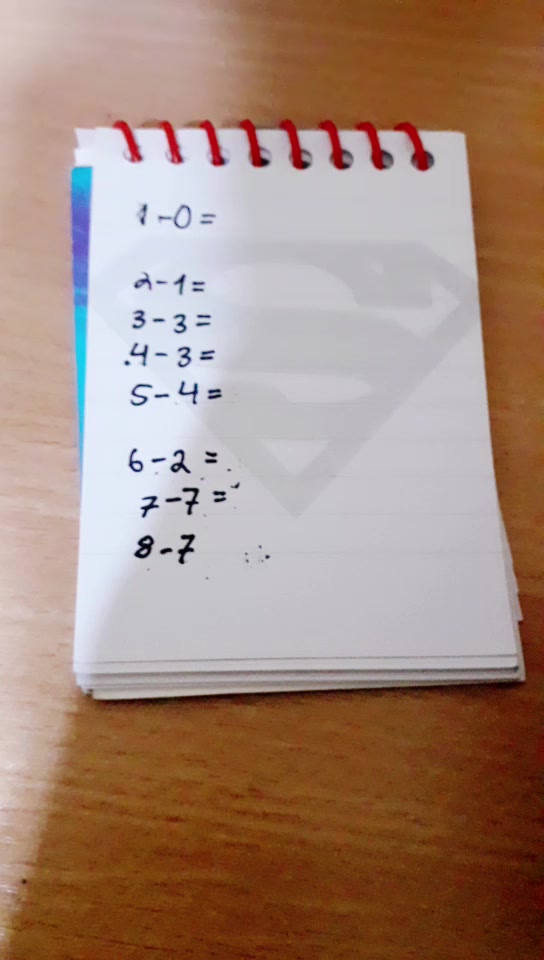 1-0=
2-1=
3-3=
4-3=
5-4=
6-2=
7-7=
8-7